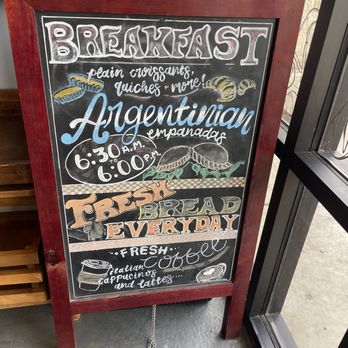 BREAKFAST
plain croissants,
quiches + more!
Argentinian
empanadas
6:30 A.M.
to
6:00 P.M.
FRESH
BREAD
EVERYDAY
FRESH
Coffee
italian
cappucinos
and lattes...